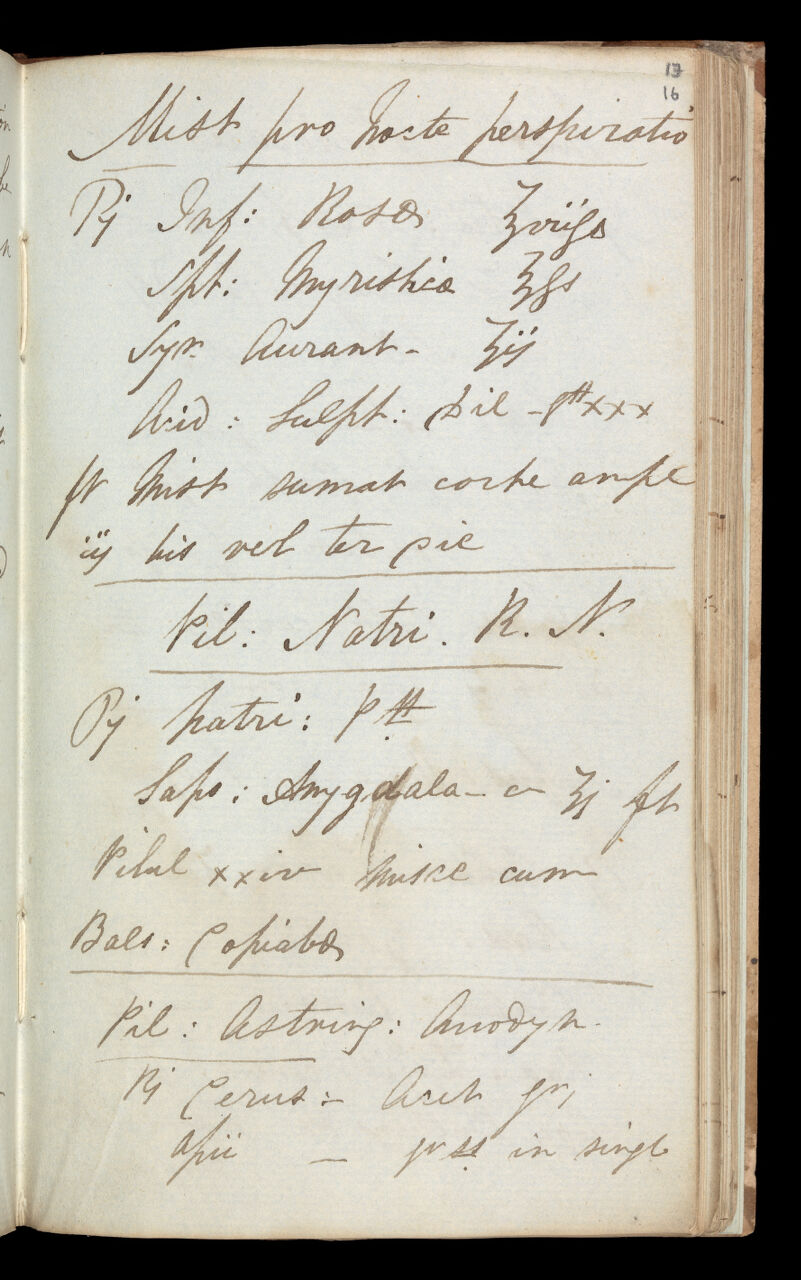 13
16
Mist pro Nocte perspiratio
℞ Inf: Rosæ ℥viiſs
Spt: Myristicæ ℥ſs
Syr. Aurant - ʒij
Acid: Sulpt: Dil - gtt xxx
ft Mist sumat cochc ample
iij bis vel ter die
Pil: Natri. R. N.
℞ Natri: P
Sapo: Amygdala - ʒj ft
Pilul xxiv misce cum
Bals: Copiabæ
Pil: Astring: Anodyn.
℞ Cerus: - Acet grj
Opii - gr ss in singl